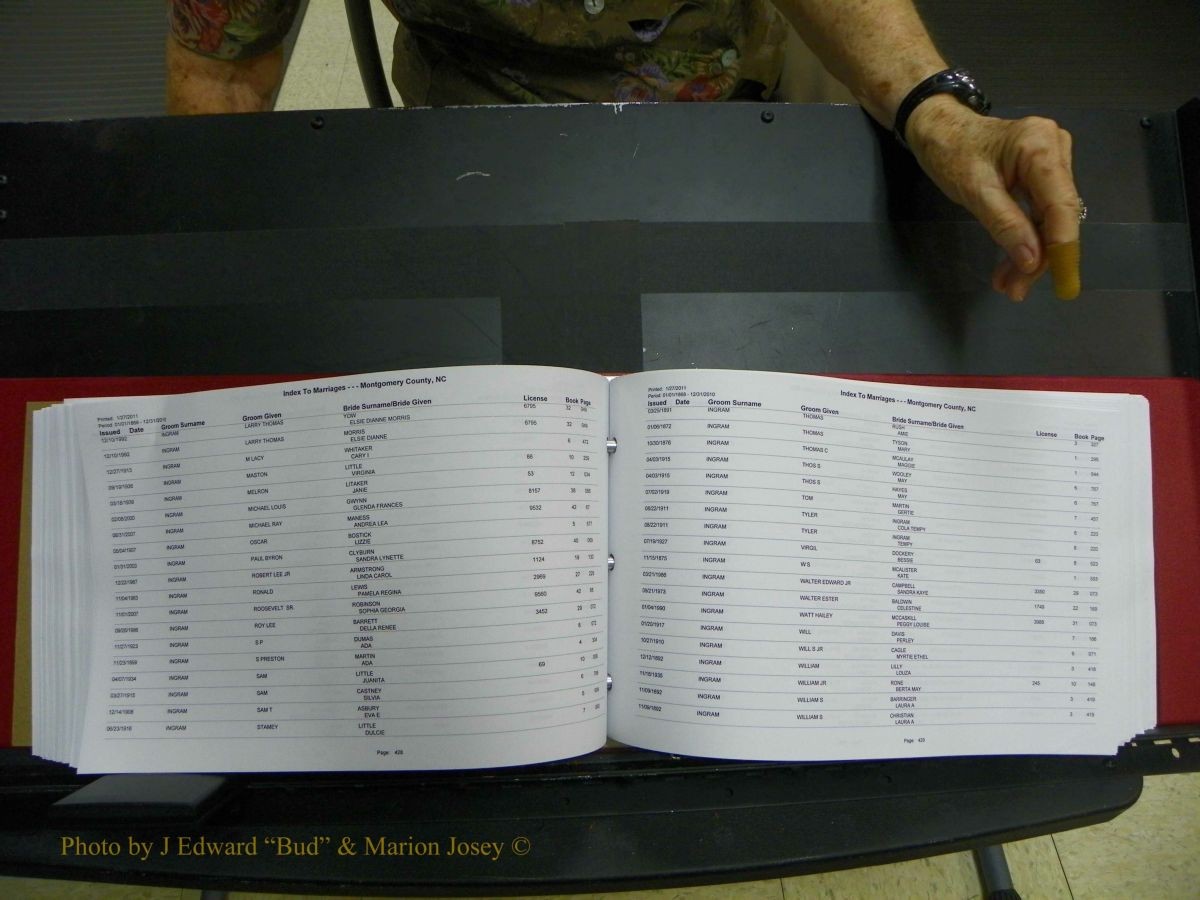 Index To Marriages - - - Montgomery County, NC
Printed: 1/27/2011
Period: 01/01/1869 - 12/31/2010
Issued Date Groom Surname Groom Given Bride Surname/Bride Given License Book Page
12/10/1992 INGRAM LARRY THOMAS YOW 6795 32 049
ELSIE DIANNE MORRIS
12/10/1992 INGRAM LARRY THOMAS MORRIS 6795 32 049
ELSIE DIANNE
12/27/1913 INGRAM M LACY WHITAKER 6 472
CARY I
09/19/1936 INGRAM MASTON LITTLE 86 10 259
VIRGINIA
03/18/1939 INGRAM MELRON LITAKER 53 12 034
JANIE
02/08/2000 INGRAM MICHAEL LOUIS GWYNN 8157 38
GLENDA FRANCES
INGRAM MICHAEL RAY MANESS 9532 42
ANDREA LEA
INGRAM OSCAR BOSTICK 5
LIZZIE
01/31/2003 INGRAM PAUL BYRON CLYBURN 8752 40
SANDRA LYNETTE
12/22/1967 INGRAM ROBERT LEE JR ARMSTRONG 1124 19
LINDA CAROL
11/04/1983 INGRAM RONALD LEWIS 2969 27
PAMELA REGINA
11/01/2007 INGRAM ROOSEVELT SR. ROBINSON 9560 42
SOPHIA GEORGIA
INGRAM ROY LEE BARRETT 3452 29 072
DELLA RENEE
11/27/1923 INGRAM S P DUMAS
ADA
11/23/1899 INGRAM S PRESTON MARTIN 4
ADA
04/07/1934 INGRAM SAM LITTLE 69 10
JUANITA
03/27/1915 INGRAM SAM CASTNEY 6
SILVIA
12/14/1908 INGRAM SAM T ASBURY 5
EVA E
06/23/1918 INGRAM STAMEY LITTLE 7
DULCIE
Page: 428
Index To Marriages - - - Montgomery County, NC
Printed: 1/27/2011
Period: 01/01/1869 - 12/31/2010
Issued Date Groom Surname Groom Given Bride Surname/Bride Given License Book Page
03/25/1891 INGRAM THOMAS RUSH 3 327
AMIE
01/06/1872 INGRAM THOMAS TYSON 1 295
MARY
10/30/1876 INGRAM THOMAS C MCAULAY 1 544
MAGGIE
04/03/1915 INGRAM THOS S WOOLEY 6 757
MAY
04/03/1915 INGRAM THOS S HAYES 6 757
MAY
07/02/1919 INGRAM TOM MARTIN 7 457
GERTIE
08/22/1911 INGRAM TYLER INGRAM 6 220
COLA TEMPY
08/22/1911 INGRAM TYLER INGRAM 6 220
TEMPY
07/19/1927 INGRAM VIRGIL DOCKERY 63 8 623
BESSIE
11/15/1875 INGRAM W S MCALISTER 1 533
KATE
03/21/1986 INGRAM WALTER EDWARD JR CAMPBELL 3350 29 073
SANDRA KAYE
08/21/1973 INGRAM WALTER ESTER BALDWIN 1749 22 169
CELESTINE
01/04/1990 INGRAM WATT HAILEY MCCASKILL 31 073
PEGGY LOUISE
01/20/1917 INGRAM WILL DAVIS 7 166
PERLEY
10/27/1910 INGRAM WILL S JR CAGLE 6 071
MYRTIE ETHEL
12/12/1892 INGRAM WILLIAM LILLY 3 418
LOUZA
11/15/1935 INGRAM WILLIAM JR RONE 245 10 148
BERTA MAY
11/09/1892 INGRAM WILLIAM S BARRINGER 3 419
LAURA A
11/09/1892 INGRAM WILLIAM S CHRISTIAN 3 419
LAURA A
Page: 429
Photo by J Edward “Bud” & Marion Josey ©